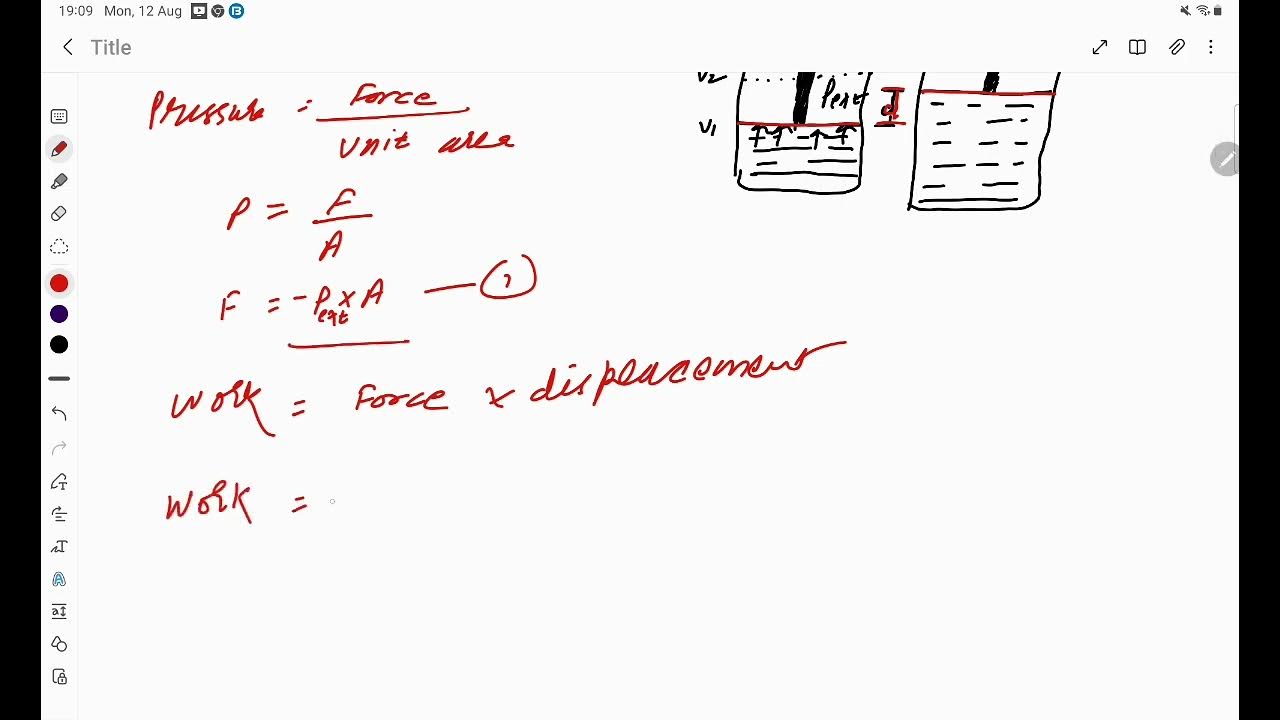 19:09 Mon, 12 Aug
Title
Pressure = Force / unit area
P = F / A
F = -Pext × A — (1)
Work = Force × displacement
Work =
V2
Pext
V1
d